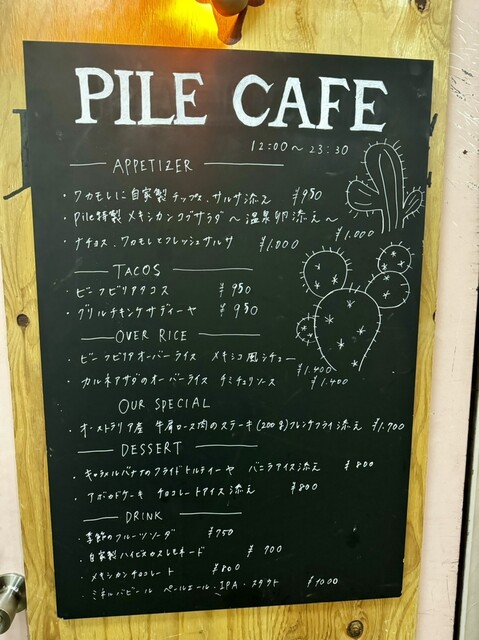 PILE CAFE
12:00〜23:30
APPETIZER
・ワカモレに自家製チップス、サルサ添え ¥950
・Pile特製メキシカンコブサラダ〜温泉卵添え〜 ¥1.000
・ナチョス、ワカモレとフレッシュサルサ ¥1.000
TACOS
・ビーフビリアタコス ¥950
・グリルチキンケサディーヤ ¥950
OVER RICE
・ビーフビリアオーバーライス メキシコ風シチュー ¥1.400
・カルネアサダのオーバーライス チミチュリソース ¥1.400
OUR SPECIAL
・オーストラリア産 牛肩ロース肉のステーキ(200g)フレンチフライ添え ¥1.700
DESSERT
・キャラメルバナナのフライドトルティーヤ バニラアイス添え ¥800
・アボカドケーキ チョコレートアイス添え ¥800
DRINK
・季節のフルーツソーダ ¥750
・自家製ハイビスカスレモネード ¥700
・メキシカンチョコレート ¥800
・ミネルバビール ペールエール・IPA・スタウト ¥1000